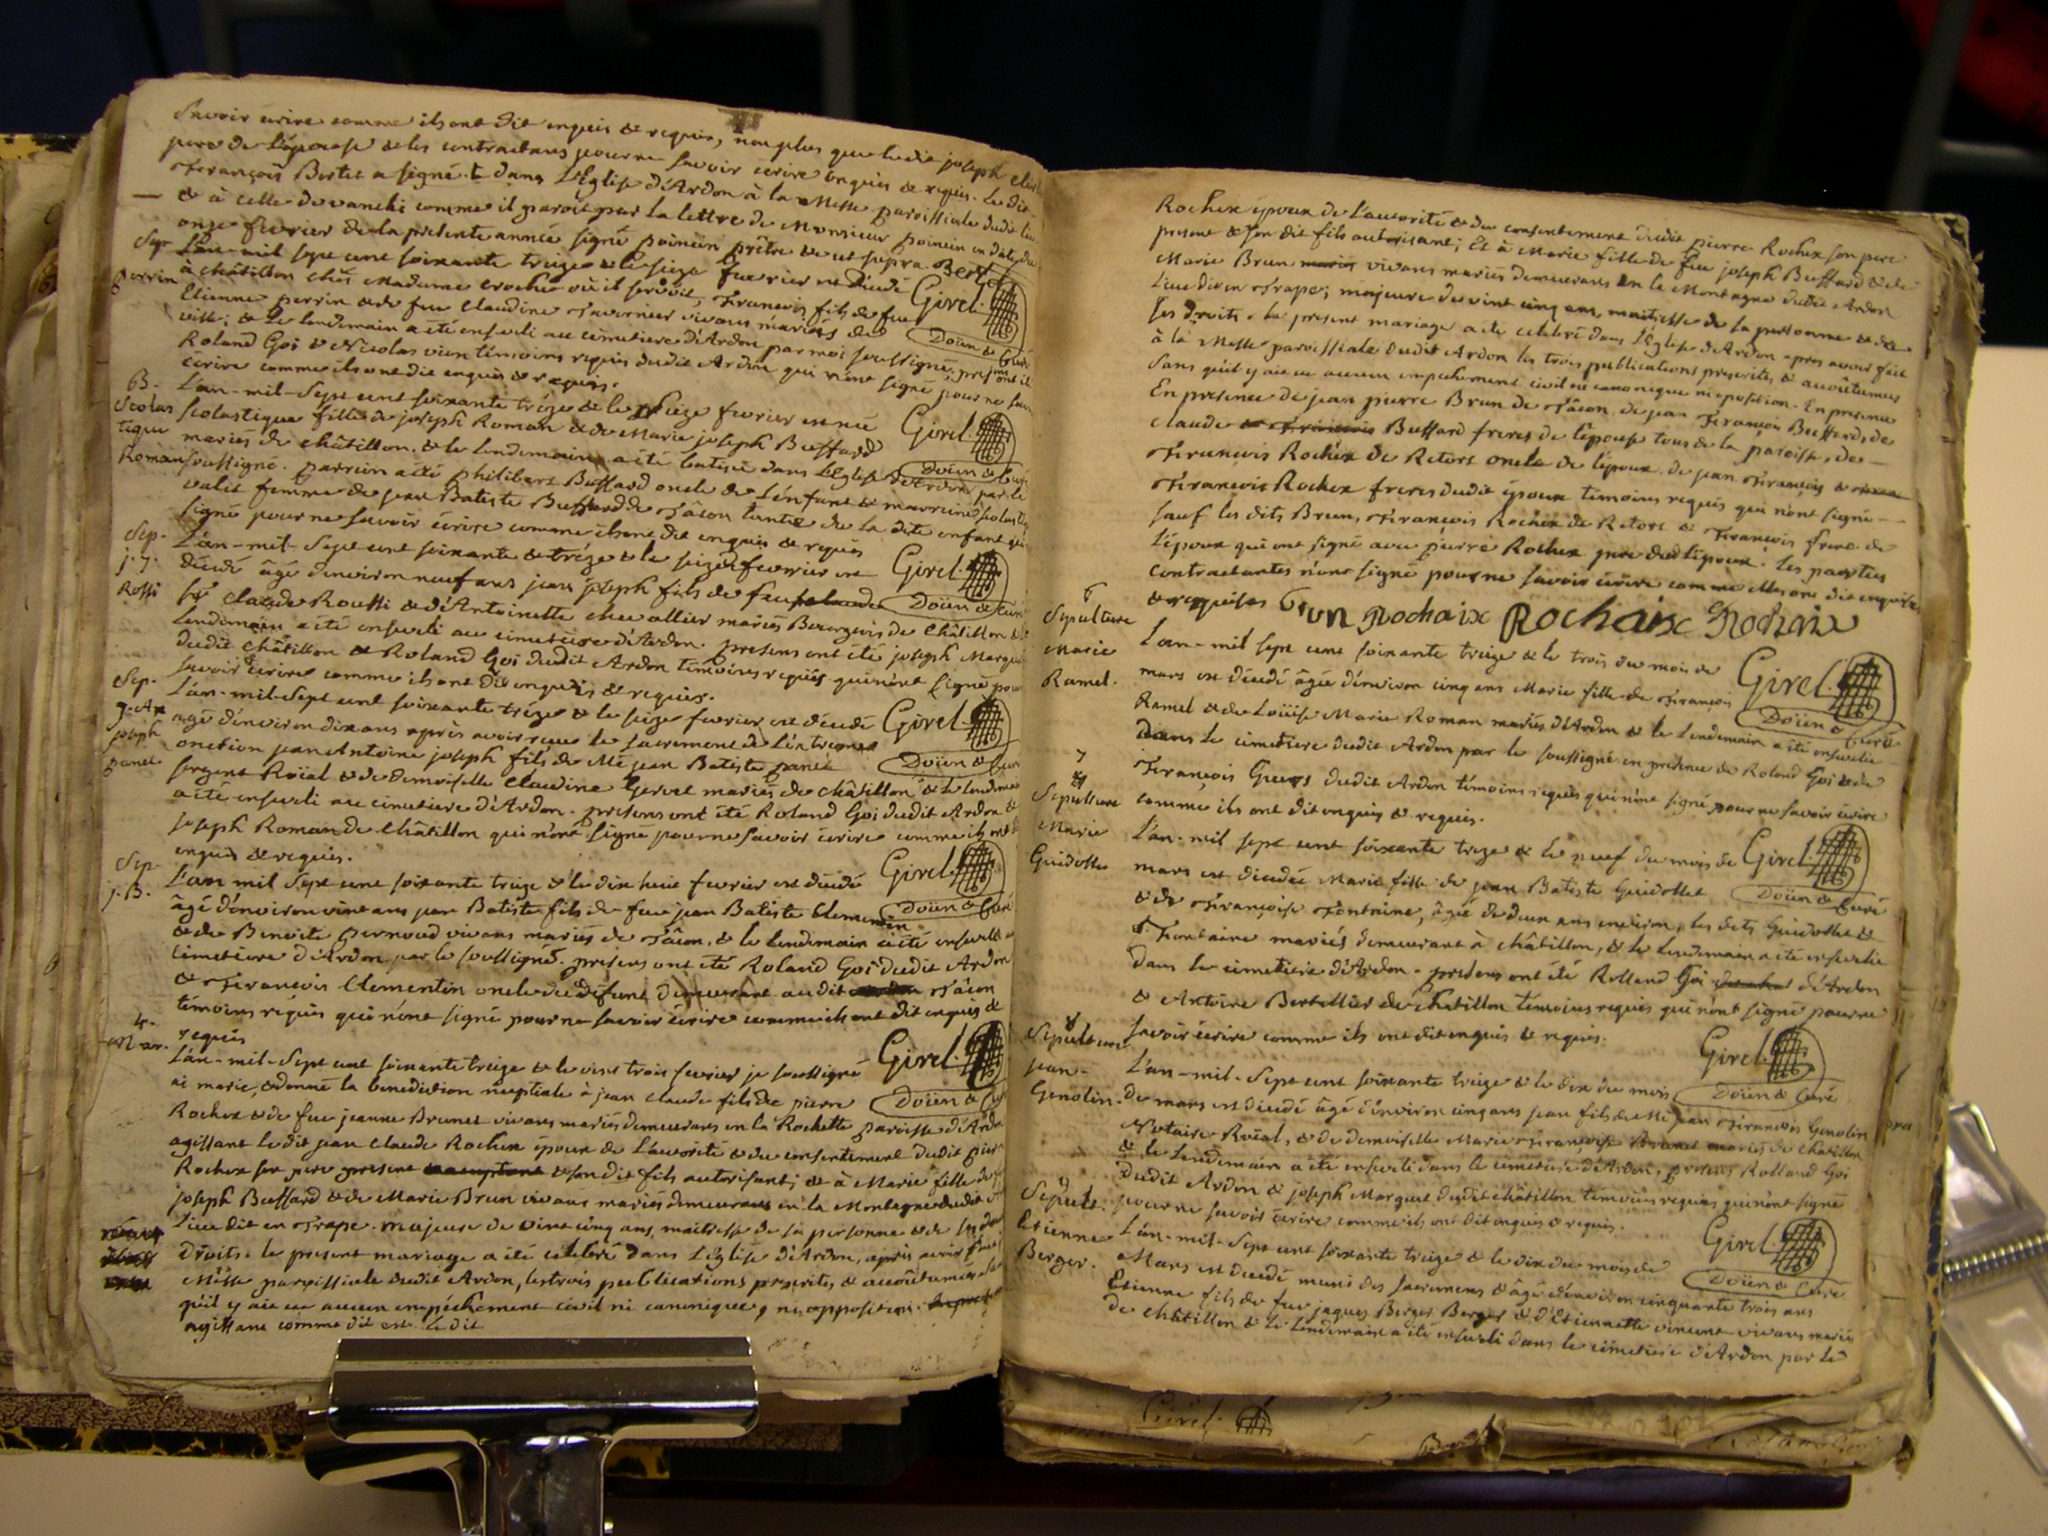 Savoir écrire comme ils ont dit enquis & requis, non plus que ledit joseph
pere de L'épouse & les contractans pour ne savoir écrire enquis & requis. Le dit
François Bertet a signé. & dans L'Eglise d'Ardon à la Messe paroissiale dudit lieu
& à celle de vanchi comme il paroit par la lettre de Monsieur poincin en date du
onze fevrier de la presente année signé poincin prêtre & ut supra. Bertet
Sep. L'an-mil sept cent soixante treize & le seize fevrier est décédé Girel.
perrin à châtillon chés Madame crochet où il servoit, François fils de feu
Etienne perrin & de feu Claudine Tavernier vivans mariés de Doïen & Curé
ville; & le lendemain a été enseveli au cimetiere d'Ardon par moi soussigné, presens ont été
Roland Goi & Nicolas vion témoins requis dudit Ardon qui n'ont signé pour ne savoir
écrire comme ils ont dit enquis & requis.
B. L'an-mil-sept cent soixante tréze & le seize fevrier est née Girel.
Scolas scolastique fille de joseph Roman & de Marie joseph Buffard
tique mariés de châtillon. & le lendemain a été batisée dans L'Eglise d'Ardon par le Doïen & Curé
Roman soussigné. parrein a été philibert Buffard oncle de L'enfant & marreine scolastique
valet femme de jean Batiste Buffard de Tâcon tante de la dite enfant qui
signé pour ne savoir écrire comme ils ont dit enquis & requis
Sep. L'an-mil-sept cent soixante & tréze & le seize fevrier est Girel.
j. j. décédé âgé d'environ neuf ans jean joseph fils de feu Doïen & Curé
Rossi Sr. claude Roussi & d'Antoinette chevallier mariés Bourgeois de Châtillon & le
Lendemain a été enseveli au cimetiere d'Ardon. presens ont été joseph Marquet
dudit châtillon & Roland Goi dudit Ardon témoins requis qui n'ont signé pour
savoir écrire comme ils ont dit enquis & requis.
Sep. L'an-mil-sept cent soixante tréze & le seize fevrier est décédé Girel.
j. An agé d'environ dix ans après avoir reçu le sacrement de L'extreme
joseph onction jean Antoine joseph fils de Me jean Batiste Doïen & Curé
sergent Roïal & de demoiselle Claudine Gervet mariés de châtillon & le lendemain
a été enseveli au cimetiere d'Ardon. presens ont été Roland Goi dudit Ardon &
joseph Roman de Châtillon qui n'ont signé pour ne savoir écrire comme ils ont dit
enquis & requis.
Sep. L'an mil sept cent soixante treize & le dix huit fevrier est décédé Girel.
j. B. âgé d'environ vint ans jean Batiste fils de feu jean Batiste Clementin Doïen & Curé
& de Benoite pernoud vivans mariés de Tâcon, & le lendemain a été enseveli au
cimetiere d'Ardon par le soussigné. presens ont été Roland Goi dudit Ardon
& François Clementin oncle du défunt demeurant au dit Tâcon
témoins requis qui n'ont signé pour ne savoir écrire comme ils ont dit enquis &
requis
4. Mar. L'an-mil-sept cent soixante treize & le vint trois fevrier je soussigné Girel.
ai marié, & donné la benediction nuptiale à jean claude fils de pierre Doïen & Curé
Rochex & de feu jeanne Brunet vivans mariés demeurans en la Rochette paroisse d'Ardon
agissant le dit jean claude Rochex époux de L'autorité & du consentement dudit pierre
Rochex son pere present & son dit fils autorisant; & à Marie fille de feu
joseph Buffard & de Marie Brun vivans mariés demeurans en la Montagne dudit Ardon
Lieu dit en Trape. majeure de vint cinq ans, maitresse de sa personne & de ses
Droits. le present mariage a été celebré dans L'Eglise d'Ardon, après avoir fait à la
Messe paroissiale dudit Ardon, les trois publications prescrites & accoûtumées sans
qu'il y ait eu aucun empêchement civil ni canonique, ni opposition.
agissant comme dit est le dit
Rochex époux de L'autorité & du consentement dudit pierre Rochex son pere
present & son dit fils autorisant; Et à Marie fille de feu joseph Buffard & de
Marie Brun vivans mariés demeurans en la Montagne dudit Ardon
Lieu dit en Trape; majeure de vint cinq ans, maitresse de sa personne & de
ses droits. le present mariage a été celebré dans L'Eglise d'Ardon après avoir fait
à la Messe paroissiale dudit Ardon les trois publications prescrites & accoûtumées
sans qu'il y ait eu aucun empechement civil ni canonique ni oposition. En presence
En presence de jean pierre Brun de Tâcon, de jean François Buffard, de
claude Buffard freres de l'épouse tous de la paroisse, de
François Rochex de Retort oncle de l'époux, de jean François &
François Rochex freres dudit époux témoins requis qui n'ont signé
sauf les dits Brun, François Rochex de Retort & François frere de
L'époux qui ont signé avec pierre Rochex pere dudit époux. Les parties
contractantes n'ont signé pour ne savoir écrire comme elles ont dit enquises
& requises Brun Rochaix Rochaix Rochaix
6
Sepulture L'an-mil sept cent soixante treize & le trois du mois de Girel.
Marie mars est décédé âgée d'environ cinq ans Marie fille de François
Ramel. Ramel & de Loüise Marie Roman mariés d'Ardon & le Lendemain a été ensevelie Doïen & Curé
Dans le cimetiere dudit Ardon par le soussigné en presence de Roland Goi & de
François dudit Ardon témoins requis qui n'ont signé pour ne savoir écrire
comme ils ont dit enquis & requis.
7
Sepulture L'an-mil sept cent soixante treize & le neuf du mois de Girel.
Marie mars est décédée Marie fille de jean Batiste Guidollet Doïen & Curé
Guidollet & de Françoise Fontaine, âgée de deux ans environ, les dits Guidollet &
Fontaine mariés demeurant à châtillon, & le Lendemain a été ensevelie
dans le cimetiere d'Ardon. presens ont été Rolland Goi d'Ardon
& Antoine Bertellier de Chatillon témoins requis qui n'ont signé pour ne
savoir écrire comme ils ont dit enquis & requis.
8
Sepulture L'an-mil-sept cent soixante treize & le dix du mois Girel.
jean- De mars est décédé âgé d'environ cinq ans jean fils de Me jean François Genolin Doïen & Curé
Genolin. Notaire Roïal, & de demoiselle Marie Françoise mariés de châtillon
& le Lendemain a été enseveli dans le cimetiere d'Ardon, presens Rolland Goi
dudit Ardon & joseph Marquet dudit châtillon témoins requis qui n'ont signé
pour ne savoir écrire comme ils ont dit enquis & requis.
9
Sepult. L'an-mil-sept cent soixante treize & le dix du mois de Girel.
Etienne Mars est décédé muni des sacremens & âgé d'environ cinquante trois ans Doïen & Curé
Berger. Etienne fils de feu jaques Berger & d'Etiennette vincent vivans mariés
de châtillon & le Lendemain a été enseveli dans le cimetiere d'Ardon par le
Girel.